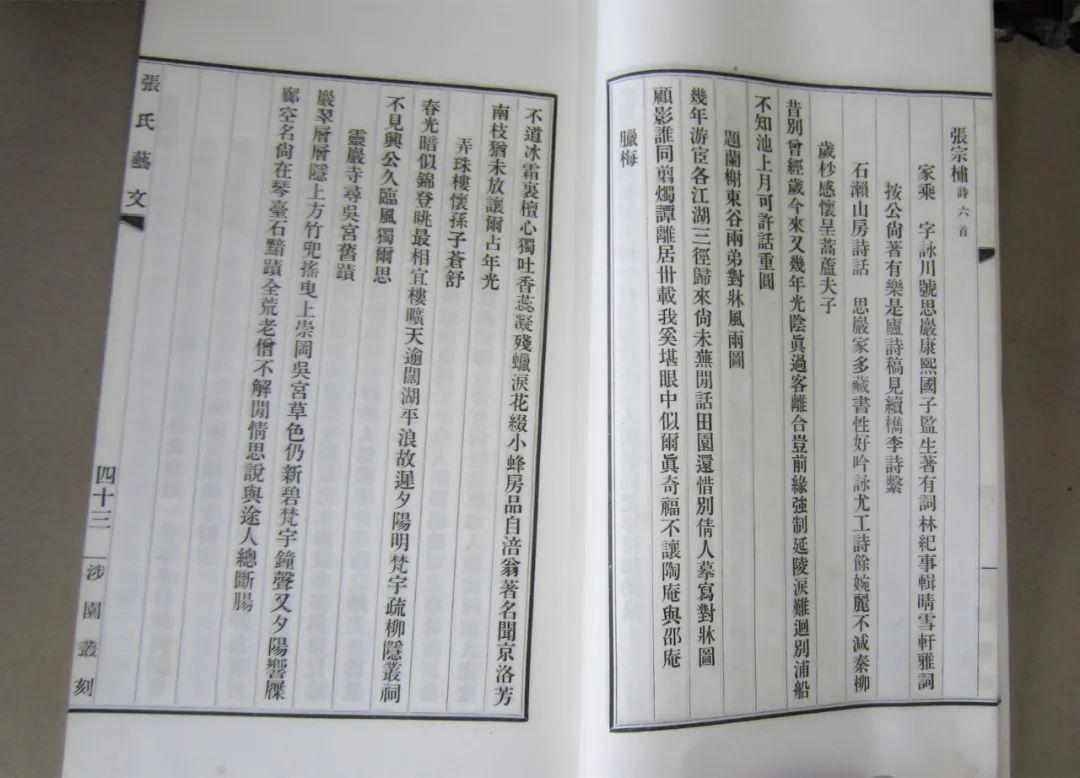 張宗橚詩六首
家乘 字詠川號思巖康熙國子監生著有詞林紀事輯晴雪軒雅詞
按公尙著有樂是廬詩稿見續檇李詩繫
石瀨山房詩話 思巖家多藏書性好吟詠尤工詩餘婉麗不減秦柳
歲杪感懷呈蒿蘆夫子
昔別曾經歲今來又幾年光陰眞過客離合豈前緣強制延陵淚難迴別浦船
不知池上月可許話重圓
題蘭榭東谷兩弟對牀風雨圖
幾年游宦各江湖三徑歸來尙未蕪閒話田園還惜別倩人摹寫對牀圖
顧影誰同剪燭譚離居卅載我奚堪眼中似爾眞奇福不讓陶庵與邵庵
臘梅
不道冰霜裏檀心獨吐香蕊凝殘蠟淚花綴小蜂房品自涪翁著名聞京洛芳
南枝猶未放讓爾占年光
弄珠樓懷孫子蒼舒
春光暗似錦登眺最相宜樓曠天逾闊湖平浪故遲夕陽明梵宇疏柳隱叢祠
不見興公久臨風獨爾思
靈巖寺尋吳宮舊蹟
巖翠層層隱上方竹兜搖曳上崇岡吳宮草色仍新碧梵宇鐘聲又夕陽響屧
廊空名尙在琴臺石黯蹟全荒老僧不解閒情思說與途人總斷腸
張氏藝文
四十三
涉園叢刻